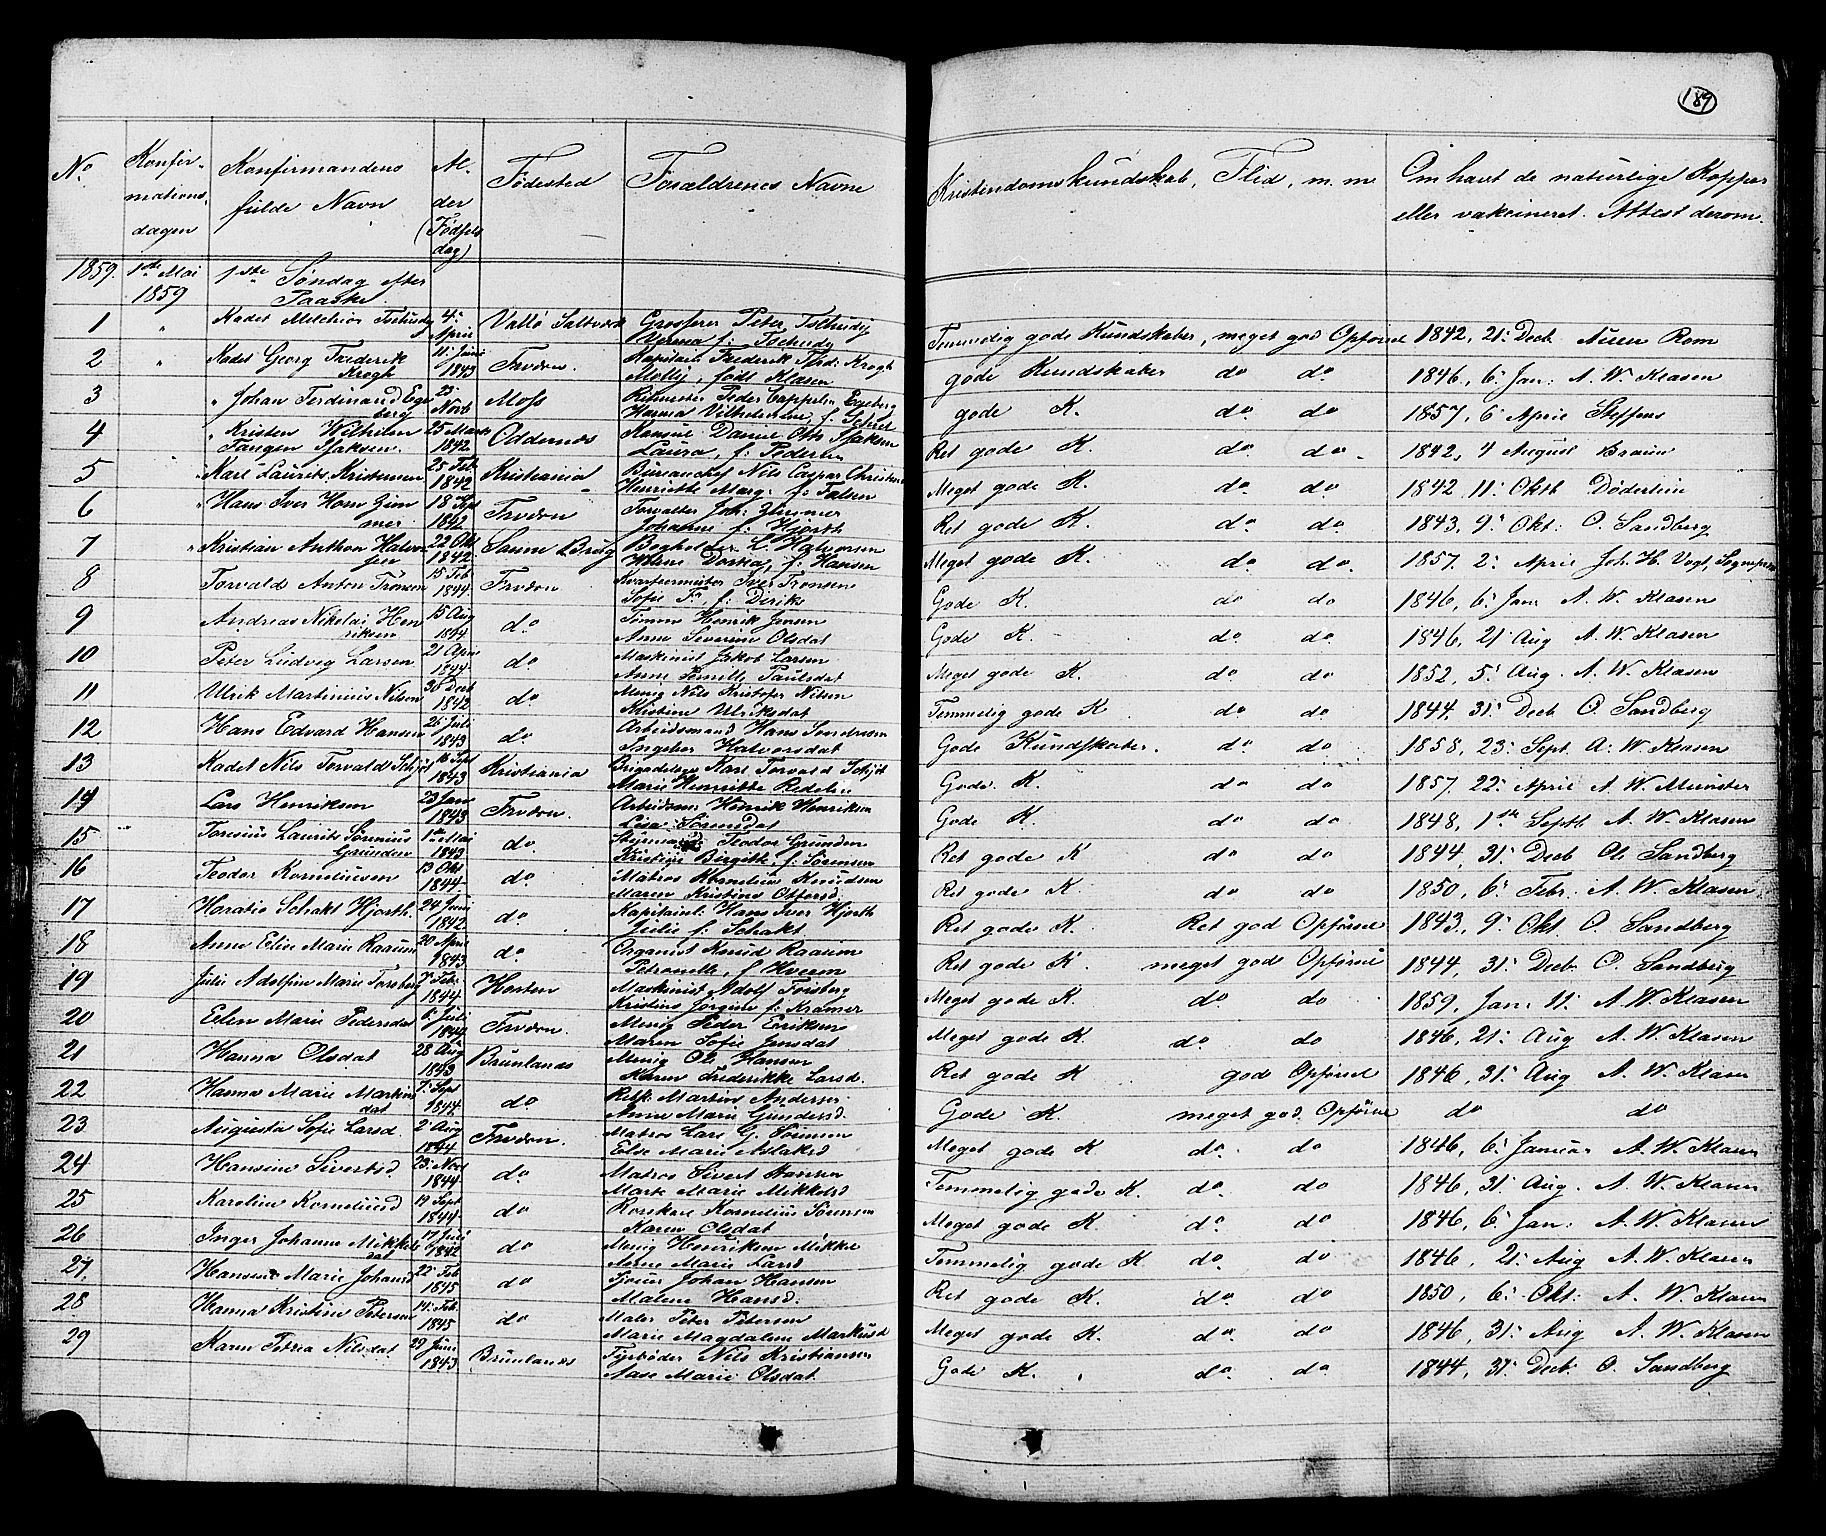 189
No
Konfir-
mations
dagen
Konfirmandens
fulde Navn
Al-
der
(Fødsels
dag)
Fødested
Forældrenes Navne
Kristendomskundskab, Flid, m. m
Om havt de naturlige Kopper
eller vakcineret. Attest derom.
1859. 1ste Mai 1ste Søndag efter
1859 Paaske.
1 " Kadet Milchior 4: April Vallø Saltværk Grosserer Peter
Temmelig gode Kundskaber, meget god Opførsel 1842, 21: Decb
2 " Kadet Georg Frederik 11: Juni Frvørn. Kapitain Frederik Ferd: Krogh
Krogh 1843 Molly, født Klasen
gode Kundskaber do do 1846, 6: Jan: A. W. Klasen
3 " Johan Ferdinand Ege 23 Moss Peder Cappelen Egeberg
berg Novb Hanna Vilhelmine, f.
gode K. do do 1857, 6 April Steffens
4 " Kristen Wilhelm 25 Marts Oddernes Konsul Daniel Otto Isaksen
Tangen Isaksen. 1842 Laura, f: Pedersen
Ret gode K. do do 1842, 4 August Braun
5 " Karl Laurits Kristensen 25 Feb Kristiania Bureauchef Nils Caspar Christen
1842 Henriette Marg: f: Falsen
Meget gode K. do do 1842 11: Oktb Døderlein
6 " Hans Iver Horn Zim 18 Sept Frvørn Forvalter Joh: Zimmer
mer 1842 Johanne f: Hjorth
Ret gode K. do do 1843, 9: Okt: O. Sandberg
7 " Kristian Anthon Halvor 22 Okt Saum Brug Bogholder L. Halvorsen
sen 1842 Dortea, f: Hansen
Meget gode K. do do. 1857. 2: April Joh. H. Vogt, Sognepræst
8 Torvald Anton Tronsen 15 Feb Frvørn Kvartermester Iver Tronsen
1844 Sofie F, f: Diriks
Gode K. do do 1846, 6: Jan: A. W. Klasen
9 Andreas Nikolai Hen 15 Aug do Tømm Henrik Jensen
riksen 1844 Anne Severine Olsdat
Gode K. do do 1846, 21 Aug A. W. Klasen
10 Peter Ludvig Larsen 21 April do Maskinist Jakob Larsen
1844 Anne Pernille Paulsdat
Meget gode K. do do 1852, 5: Aug. A. W. Klasen
11 Ulrik Martinius Nilsen 30 Decb do Menig Nils Kristofer Nilsen
1842 Kristine Ulriksdat
Temmelig gode K do do 1844, 31: Decb O. Sandberg
12 Hans Edvard Hansen 26 Juli do Arbeidsmand Hans
1843 Ingebor Halvorsdat
Gode Kundskaber. do do 1858, 23: Sept A: W Klasen
13 Kadet Nils Torvald Schjøt 16 Sept Kristiania Karl Torvald Schjøt
1843 Marie Henriette
Gode. K. do do 1857. 22: April A. W. Munster
14 Lars Henriksen 23 Jan Frvørn. Arbeidsm Henrik Henriksen
1843 Lisa Sørensdat
Gode K. do do 1848, 1ste Septb A. W. Klasen
15 Laurits Sørenius 1ste Mai do Teodor Grunden
Grunden 1843 Kristine Birgitte f. Sørensen
Ret gode K do do 1844, 31: Decb Ol. Sandberg
16 Teodor Korneliusen 13 Okt do Matros Kornelius Knudsen
1844 Maren Kristine
Ret gode K. do do 1850, 6: Febr. A. W. Klasen
17 Horatio Schakt Hjorth. 24 Juni do Kapitainl: Hans Iver Hjorth
1842 f: Schakt
Ret gode K. Ret god Opførsel 1843, 9: Okt. O. Sandberg
18 Anne Elise Marie Raaum 20 April do Organist Knud Raaum
1843 Petronelle, f
Ret gode K. meget god Opførsel 1844, 31: Decb O. Sandberg
19 Julie Adolfine Marie Forsberg Feb: Horten Maskinist Adolf Forsberg
1844 Kristine Jørgine f: Kramer
Meget gode K. do do 1859, Jan: 11: A. W. Klasen
20 Elen Marie Pedersdat 6: Juli Frvørn. Menig Peder Eriksen
1844 Maren Sofie Jensdat
Meget gode K. do do 1846, 21: Aug A. W. Klasen
21 Hanna Olsdat 28 Aug Brunlanes Menig Ole Hansen
1843 Karen Frederikke Larsd.
Ret gode K god Opførsel 1846, 31: Aug A. W. Klasen
22 Hanna Marie Martins 7: Sept do Martin Andersen
dat 1844 Anne Marie Gundersd.
Gode K. meget god Opførsel do do
23 Augusta Sofie Larsd. 2: Aug Frvørn. Matros Lars G. Sørensen
1844 Else Marie Aslaksd
Meget gode K do. do 1846, 6: Januar A. W. Klasen
24 Hansine Sivertsd 23: Novb do Matros Sivert Hansen
1844 Marte Marie Mikkelsd
Temmelig gode K. do do 1846, 31: Aug. A. W. Klasen
25 Karoline Korneliusd 19 Sept do Kornelius Sørensen
1844 Karen Olsdat
Meget gode K. do. do 1846, 6: Jan: A. W. Klasen
26 Inger Johanne Mikkels 17 Juli do Menig Henriksen Mikkel
dat 1842 Anne Marie Larsd
Temmelig gode K do. do 1846, 21: Aug A. W. Klasen
27. Hansine Marie Johansd 22: Feb do Johan Hansen
1845 Malene Hansd.
Ret gode K. do. do 1850, 6: Okt: A. W. Klasen
28 Hanna Kristine Petersen 14: Feb. do Maler Peter Petersen
1845 Marie Magdalene Markusd
Meget gode K. do do 1846, 31: Aug A. W. Klasen
29 Karen Petrea Nilsdat. 29 Juni Brunlanes Fyrbøder Nils Kristiansen
1843 Aase Marie Olsdat.
Gode K. do. do 1844, 31: Decb O. Sandberg